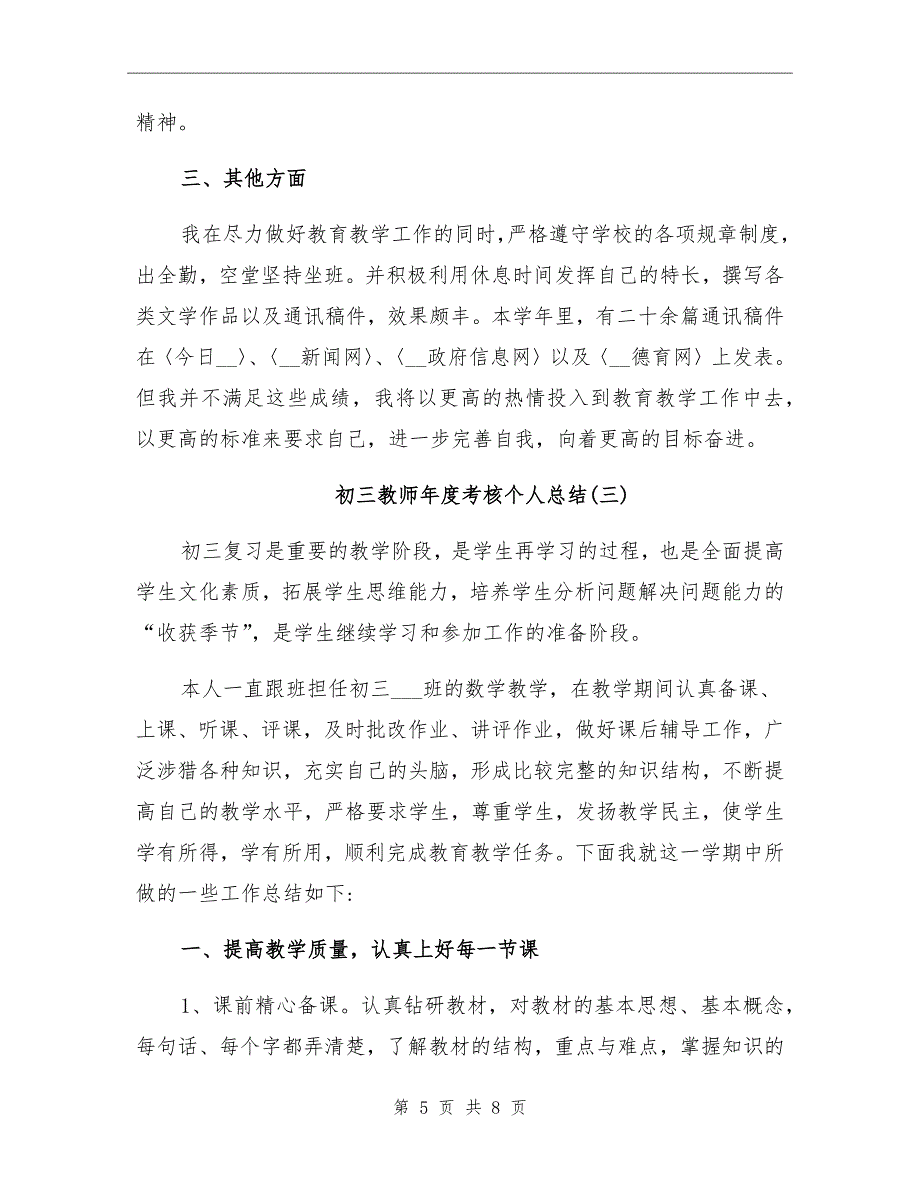 精神。
三、其他方面
我在尽力做好教育教学工作的同时，严格遵守学校的各项规章制度，
出全勤，空堂坚持坐班。并积极利用休息时间发挥自己的特长，撰写各
类文学作品以及通讯稿件，效果颇丰。本学年里，有二十余篇通讯稿件
在〈今日__〉、〈__新闻网〉、〈__政府信息网〉以及〈__德育网〉上发表。
但我并不满足这些成绩，我将以更高的热情投入到教育教学工作中去，
以更高的标准来要求自己，进一步完善自我，向着更高的目标奋进。
初三教师年度考核个人总结(三)
初三复习是重要的教学阶段，是学生再学习的过程，也是全面提高
学生文化素质，拓展学生思维能力，培养学生分析问题解决问题能力的
“收获季节”，是学生继续学习和参加工作的准备阶段。
本人一直跟班担任初三___班的数学教学，在教学期间认真备课、
上课、听课、评课，及时批改作业、讲评作业，做好课后辅导工作，广
泛涉猎各种知识，充实自己的头脑，形成比较完整的知识结构，不断提
高自己的教学水平，严格要求学生，尊重学生，发扬教学民主，使学生
学有所得，学有所用，顺利完成教育教学任务。下面我就这一学期中所
做的一些工作总结如下:
一、提高教学质量，认真上好每一节课
1、课前精心备课。认真钻研教材，对教材的基本思想、基本概念，
每句话、每个字都弄清楚，了解教材的结构，重点与难点，掌握知识的
第 5 页 共 8 页